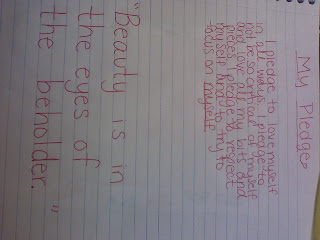 My Pledge
I pledge to love myself
in all ways. I pledge to
not be so critical of myself
and love all my bits and
pieces. I pledge to respect
myself and to try to
focus on myself.
"Beauty is in
the eyes of
the beholder."